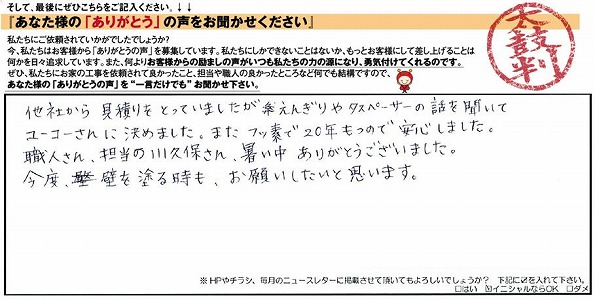 そして、最後にぜひこちらをご記入ください。↓↓
『あなた様の「ありがとう」の声をお聞かせください』
私たちにご依頼されていかがでしたでしょうか?
今、私たちはお客様から「ありがとうの声」を募集しています。私たちにしかできないことはないか、もっとお客様にして差し上げることは
何かを日々追求しています。また、何よりお客様からの励ましの声がいつも私たちの力の源になり、勇気付けてくれるのです。
ぜひ、私たちにお家の工事を依頼されて良かったこと、担当や職人の良かったところなど何でも結構ですので、
あなた様の「ありがとうの声」を"一言だけでも"お聞かせ下さい。
太鼓判
他社から見積りをとっていましたが縁えんぎりやタスペーサーの話を聞いて
ユーコーさんに決めました。またフッ素で20年もつので安心しました。
職人さん、担当の川久保さん、暑い中ありがとうございました。
今度、壁を塗る時も、お願いしたいと思います。
※HPやチラシ、毎月のニュースレターに掲載させて頂いてもよろしいでしょうか? 下記に☑を入れて下さい。
□はい ☑イニシャルならOK □ダメ